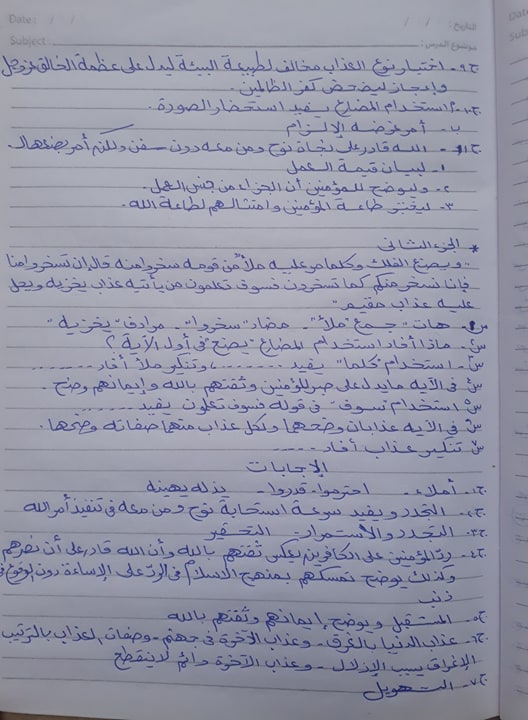 Date: / /
التاريخ: / /
Subject:
موضوع الدرس:
ج٩- اختيار نوع العذاب مخالف لطبيعة البيئة ليدل على عظمة الخالق عز وجل
وإعجاز ليفضحض كفر الظالمين.
ج١٠- أ- استخدام المضارع يفيد استحضار الصورة.
ب- أمر غرضه الإلزام
ج١١- الله قادر على نجاة نوح ومن معه دون سفن ولكنه أمر بصنعها لـ
١- لبيان قيمة العمل
٢- وليوضح للمؤمنين أن الجزاء من جنس العمل.
٣- ليختبر طاعة المؤمنين وامتثالهم لطاعة الله.
* الجزء الثانى
"ويصنع الفلك وكلما مر عليه ملأ من قومه سخروا منه قال إن تسخروا منا
فإنا نسخر منكم كما تسخرون فسوف تعلمون من يأتيه عذاب يخزيه ويحل
عليه عذاب مقيم"
س١- هات "جمع ملأ" - مضاد "سخروا" - مرادف "يخزيه"
س٢- ماذا أفاد استخدام المضارع "يصنع" فى أول الآية؟
س٣- استخدام "كلما" يفيد ........، وتنكير ملأ أفاد ........
س٤- فى الآية ما يدل على صبر المؤمنين وثقتهم بالله وإيمانهم وضح.
س٥- استخدام "سوف" فى قوله فسوف تعلمون يفيد ........
س٦- فى الآية عذابان وضحهما ولكل عذاب منهما صفاته وضحها.
س٧- تنكير عذاب أفاد ......
الإجابات
ج١- أملاء - احترموا - قدروا - يذله يهينه
ج٢- التجدد ويفيد سرعة استجابة نوح ومن معه فى تنفيذ أمر الله
ج٣- التجدد والأستمرار - التحقير
ج٤- رد المؤمنين على الكافرين يعكس ثقتهم بالله وأن الله قادر على أن ينصرهم
وكذلك يوضح تمسكهم بمنهج السلام فى الرد على الإساءة دون الوقوع فى
ذنب
ج٥- المستقبل ويوضح إيمانهم وثقتهم بالله
ج٦- عذاب الدنيا بالغرق - وعذاب الآخرة فى جهنم - وصفات العذاب بالترتيب
الإغراق يسبب الإذلال - وعذاب الآخرة دائم لا ينقطع
ج٧- التهويل